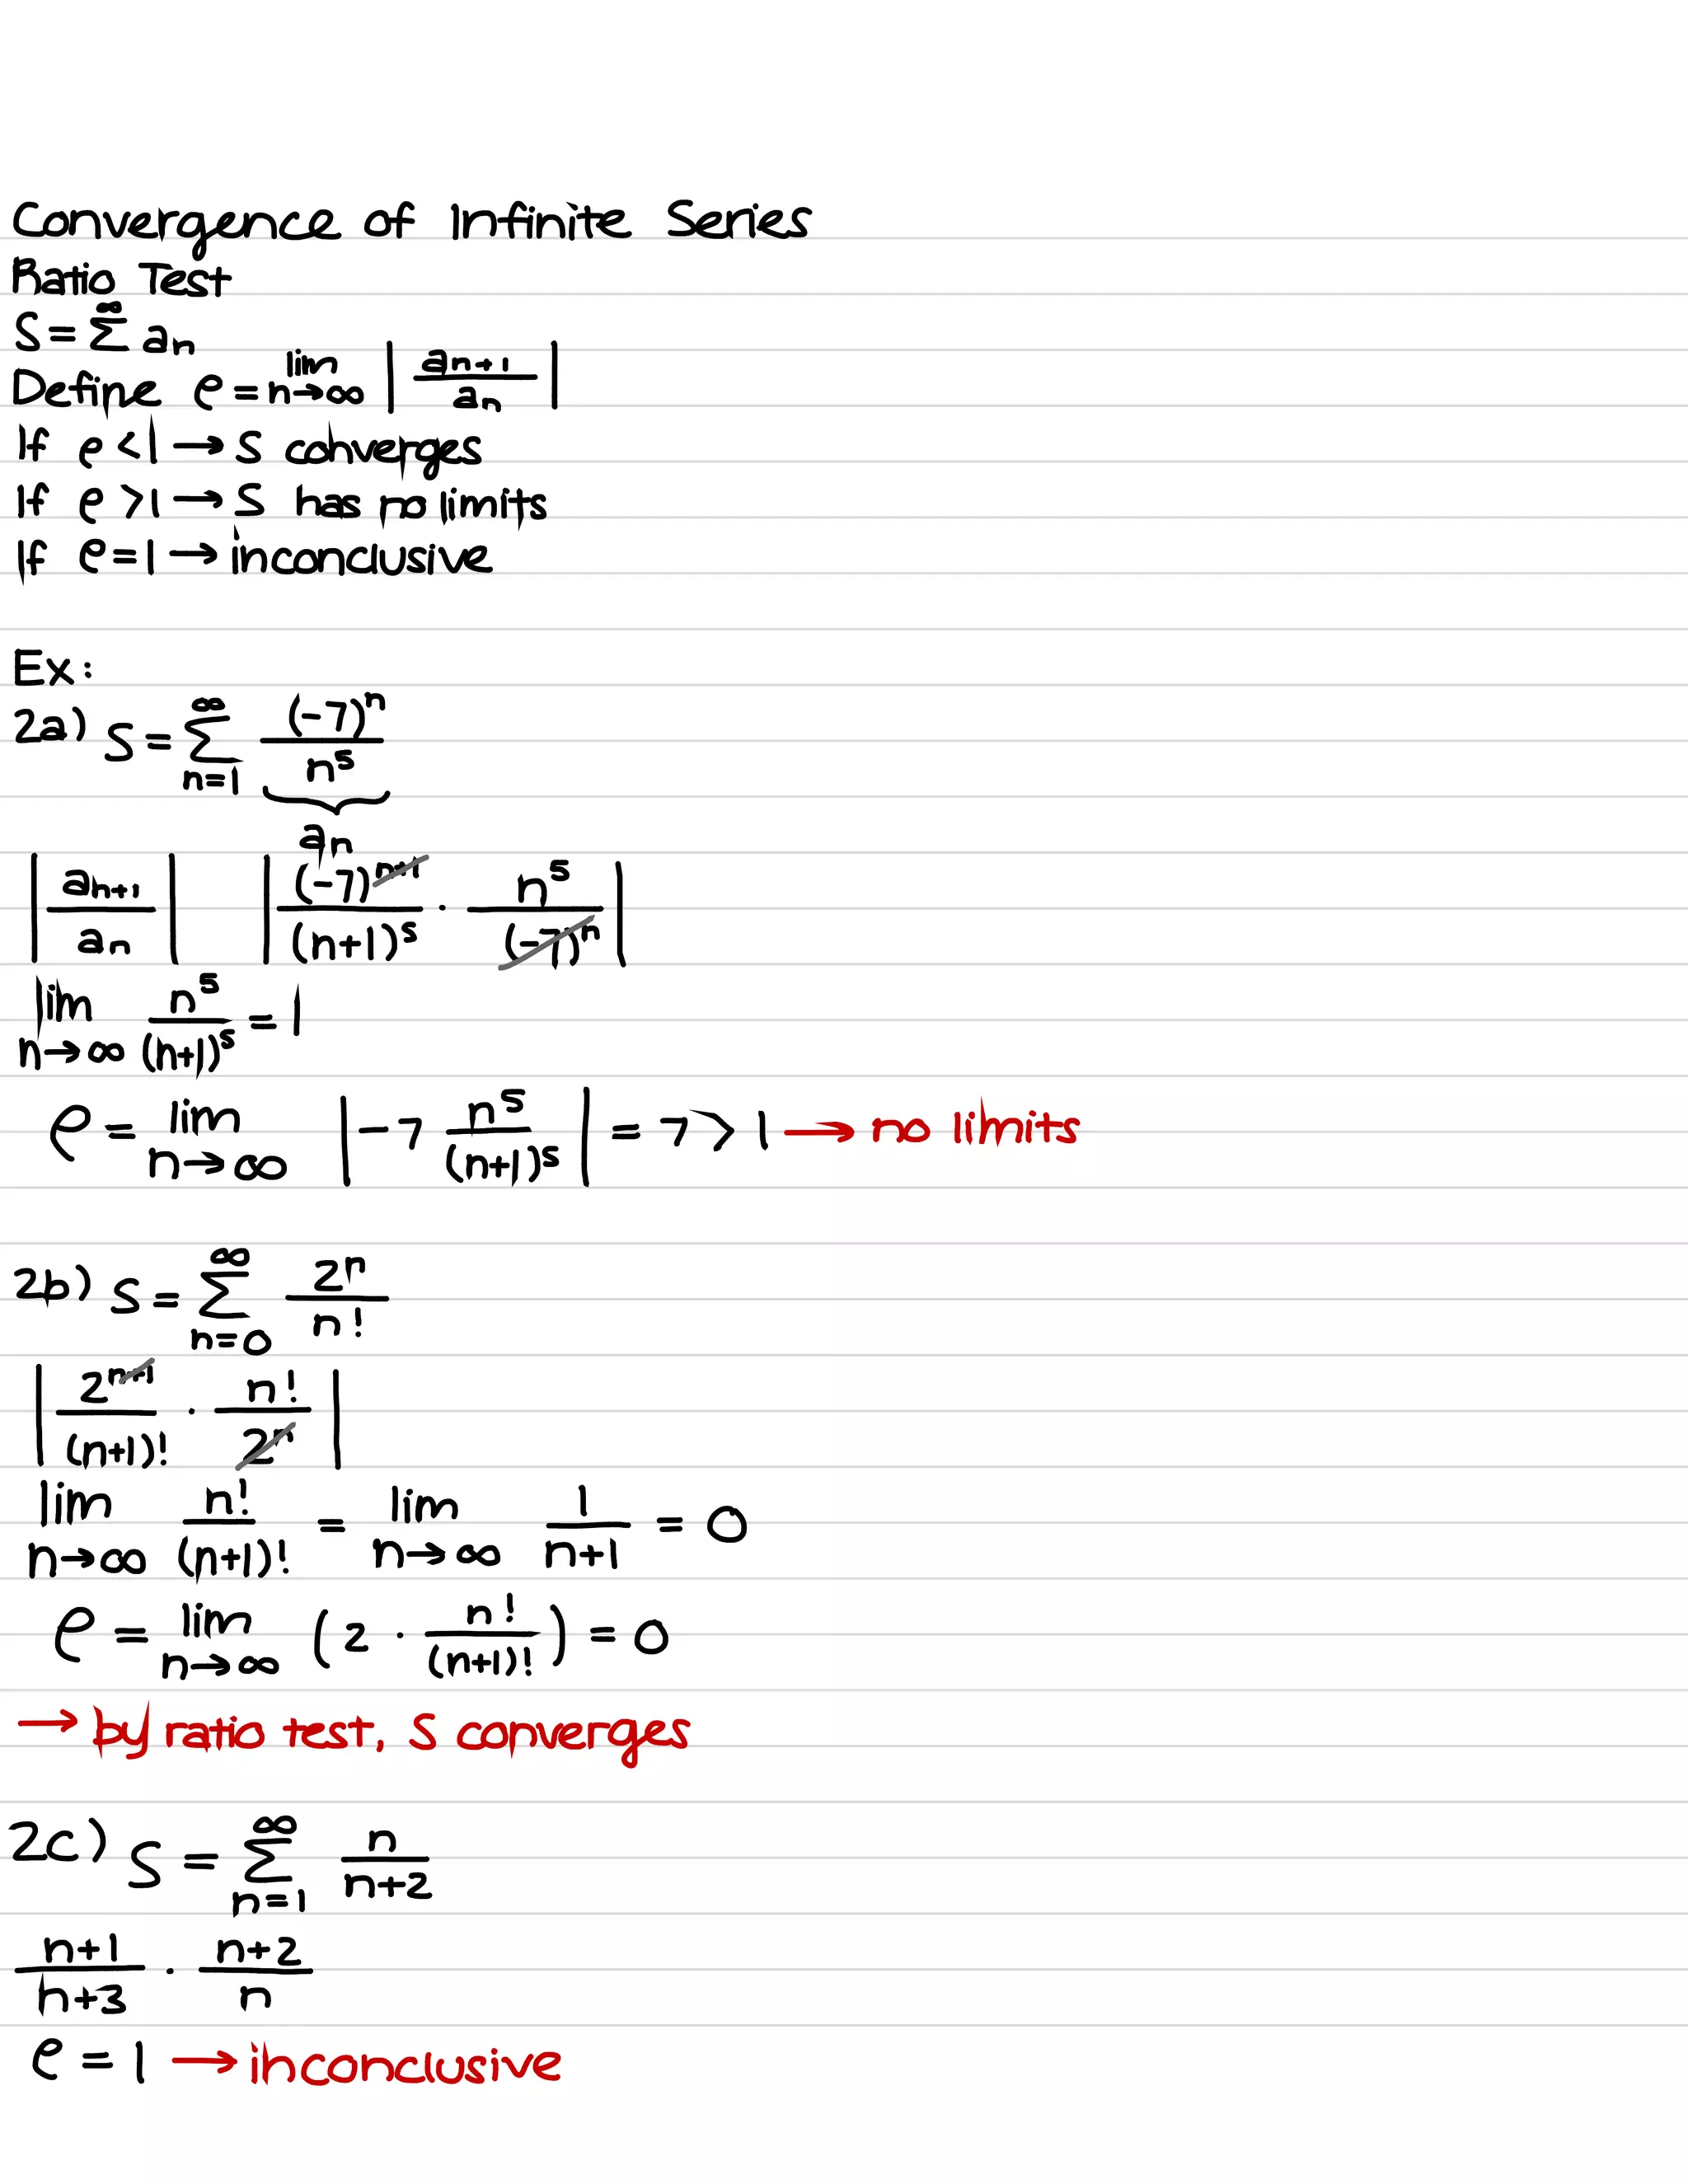 Convergence of Infinite Series
Ratio Test
S = ∑^∞ aₙ
Define ρ = lim n→∞ | aₙ₊₁ / aₙ |
If ρ < 1 → S converges
If ρ > 1 → S has no limits
If ρ = 1 → inconclusive
Ex:
2a) S = ∑_{n=1}^∞ (-7)ⁿ / n⁵
aₙ
| aₙ₊₁ / aₙ | | (-7)ⁿ⁺¹ / (n+1)⁵ · n⁵ / (-7)ⁿ |
lim n→∞ n⁵ / (n+1)⁵ = 1
ρ = lim n→∞ | -7 n⁵ / (n+1)⁵ | = 7 > 1 → no limits
2b) S = ∑_{n=0}^∞ 2ⁿ / n!
| 2ⁿ⁺¹ / (n+1)! · n! / 2ⁿ |
lim n→∞ n! / (n+1)! = lim n→∞ 1 / n+1 = 0
ρ = lim n→∞ (2 · n! / (n+1)!) = 0
→ by ratio test, S converges
2c) S = ∑_{n=1}^∞ n / n+2
n+1 / n+3 · n+2 / n
ρ = 1 → inconclusive